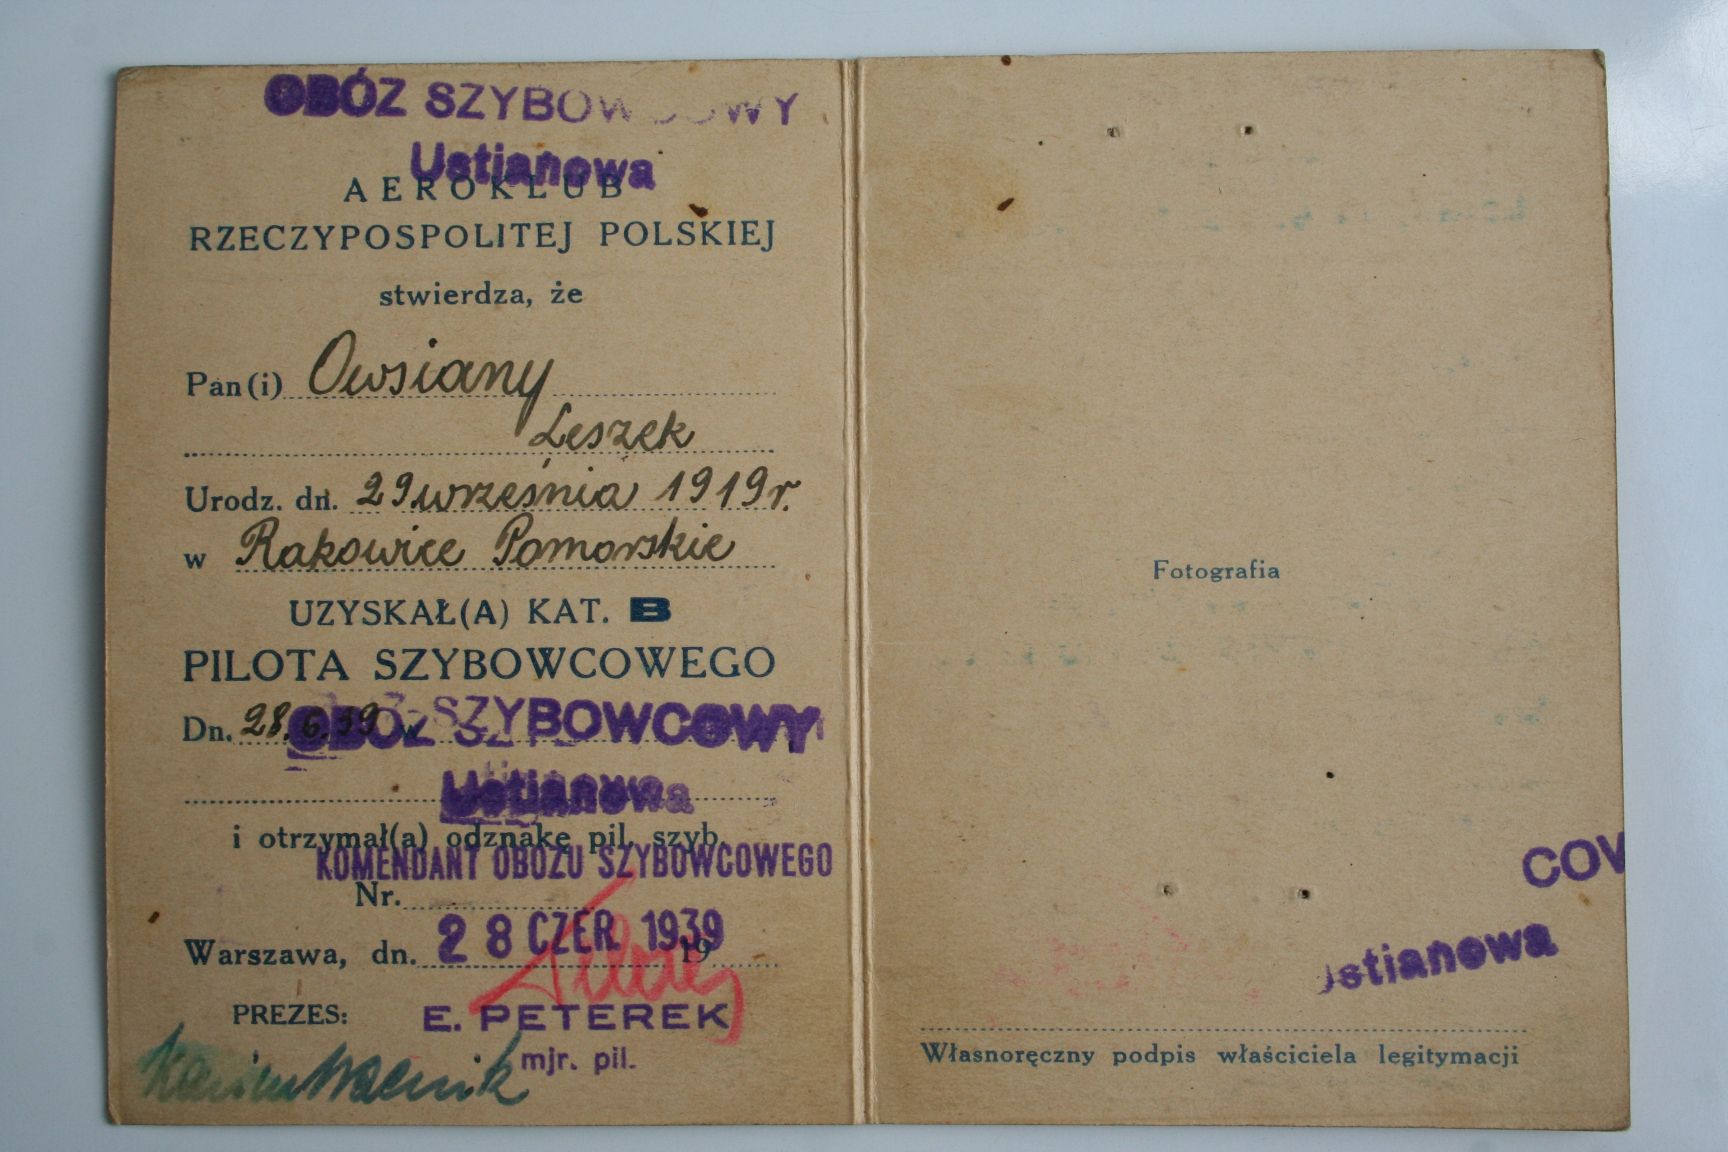 OBÓZ SZYBOWCOWY
Ustianowa
AEROKLUB
RZECZYPOSPOLITEJ POLSKIEJ
stwierdza, że
Pan(i) Owsiany
Leszek
Urodz. dn. 29 września 1919 r.
w Rakowice Pomorskie
UZYSKAŁ(A) KAT. B
PILOTA SZYBOWCOWEGO
Dn. 28.6.39 w OBÓZ SZYBOWCOWY
Ustianowa
i otrzymał(a) odznakę pil. szyb.
KOMENDANT OBOZU SZYBOWCOWEGO
Nr.
Warszawa, dn. 28 CZER. 1939 19
PREZES: E. PETEREK
mjr. pil.
Fotografia
COW
stianowa
Własnoręczny podpis właściciela legitymacji